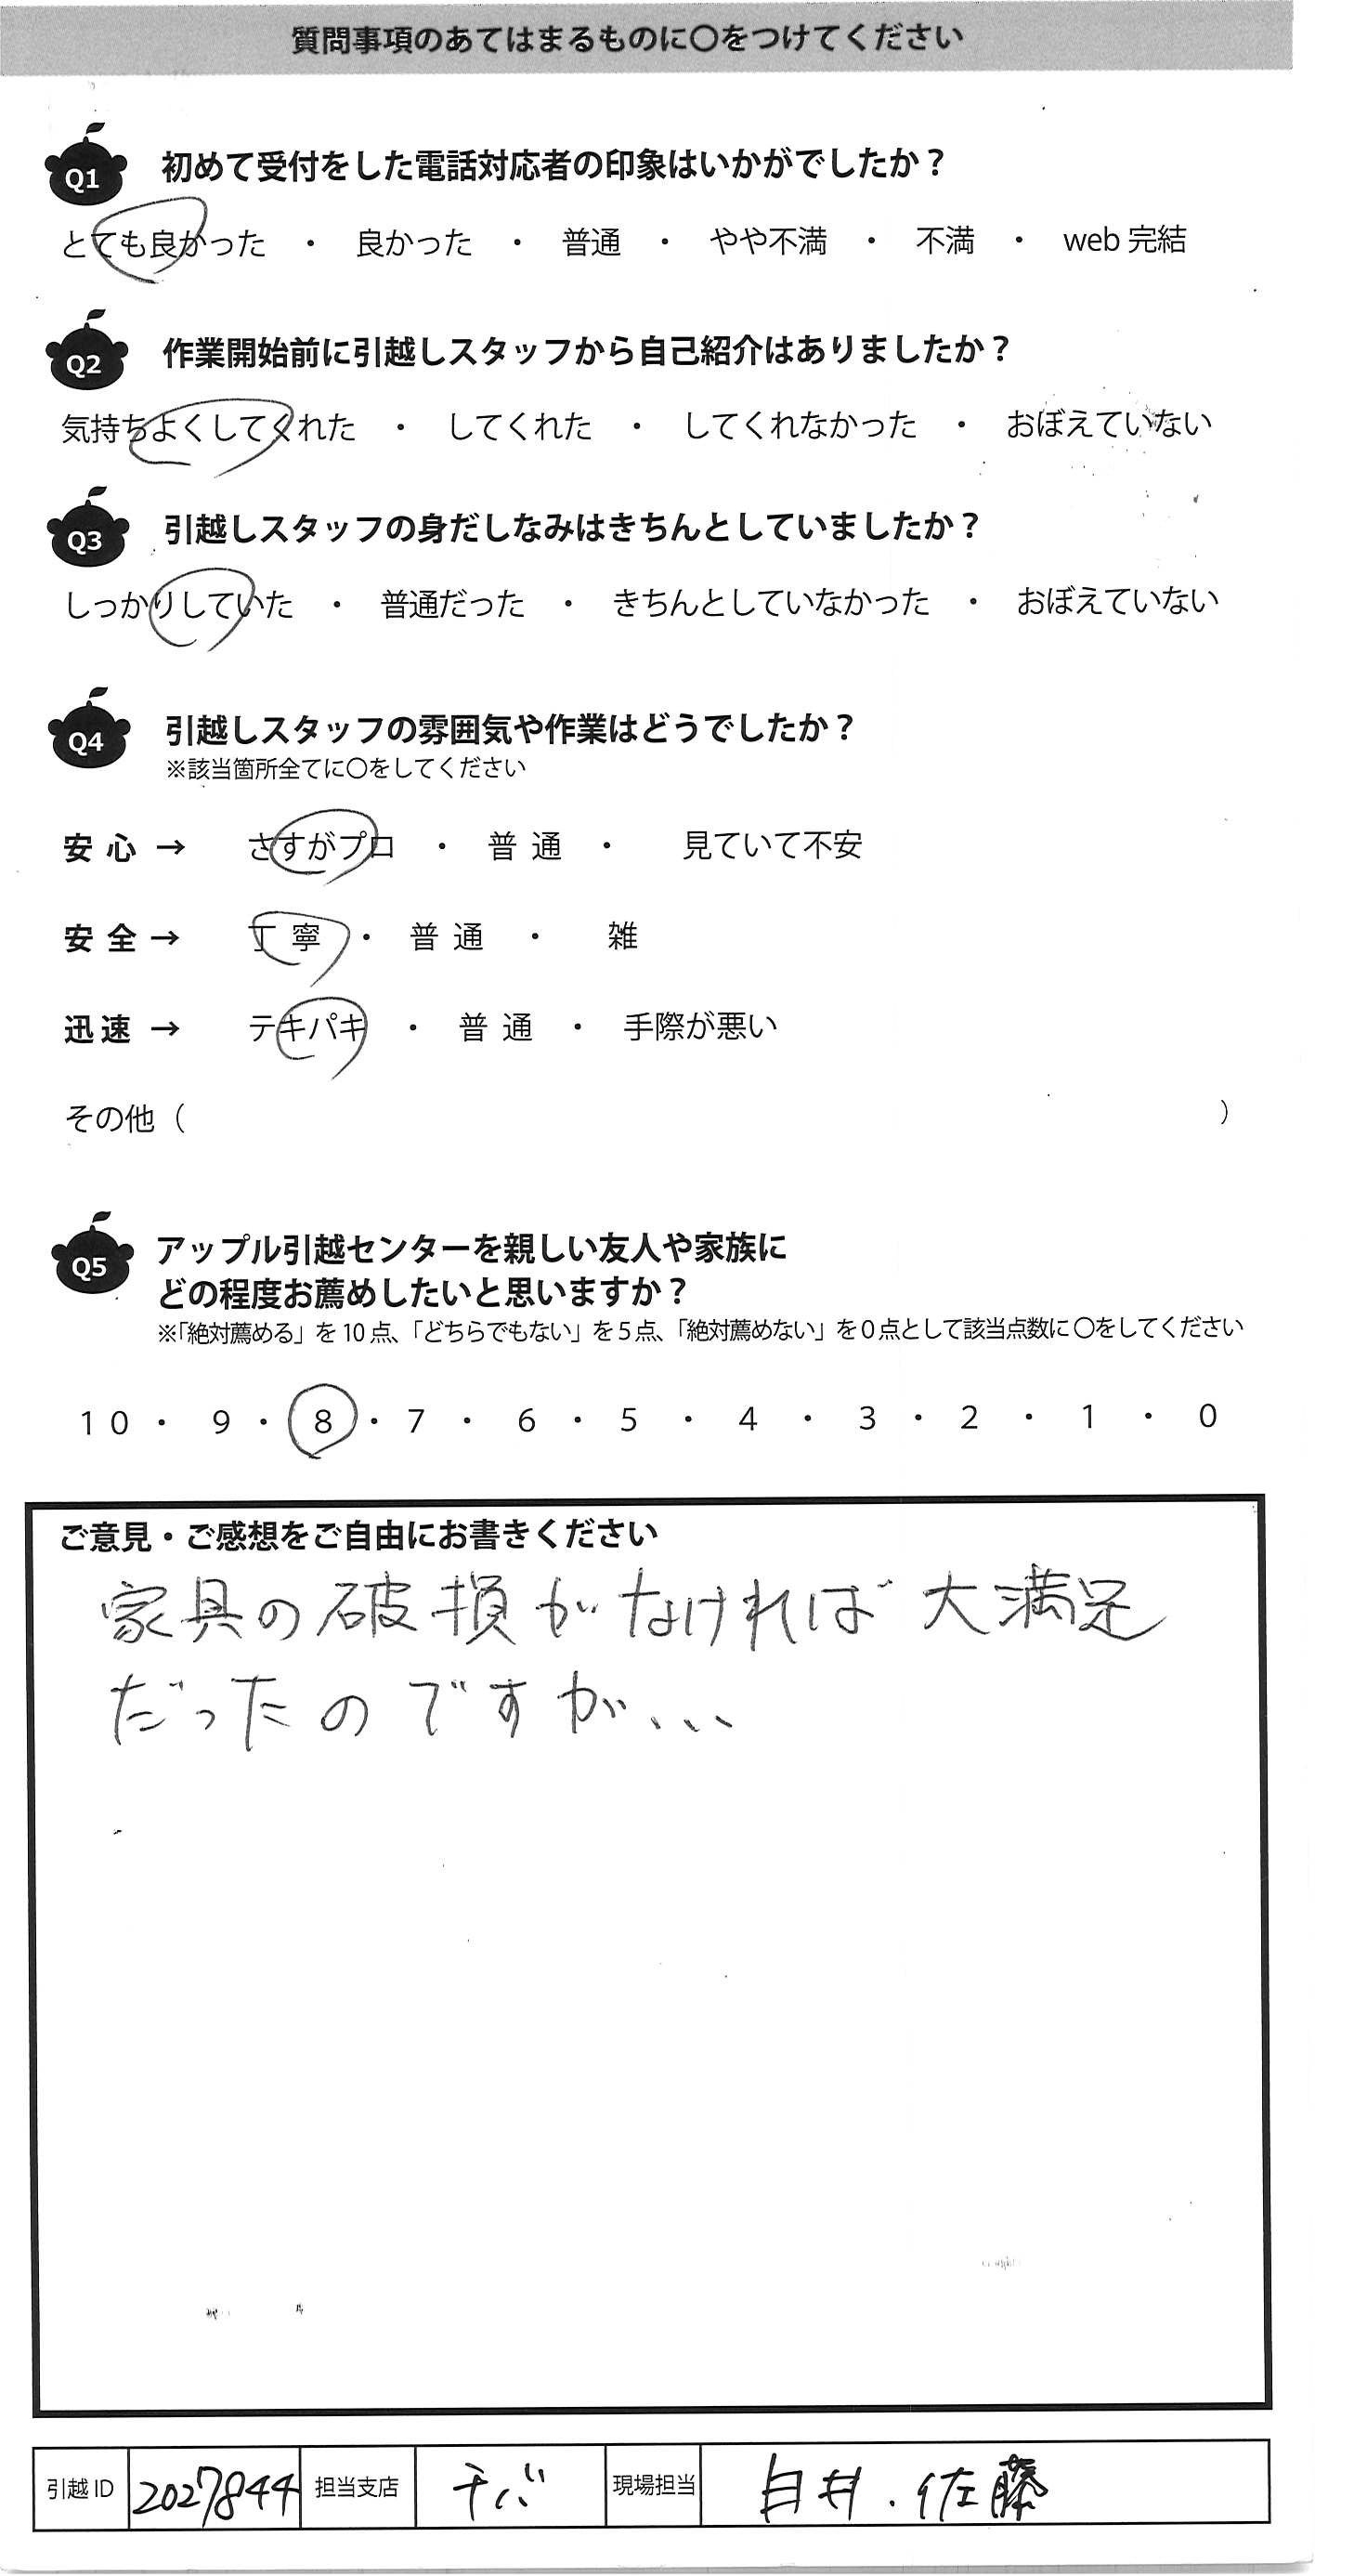 質問事項のあてはまるものに〇をつけてください
Q1 初めて受付をした電話対応者の印象はいかがでしたか？
とても良かった ・ 良かった ・ 普通 ・ やや不満 ・ 不満 ・ web 完結
Q2 作業開始前に引越しスタッフから自己紹介はありましたか？
気持ちよくしてくれた ・ してくれた ・ してくれなかった ・ おぼえていない
Q3 引越しスタッフの身だしなみはきちんとしていましたか？
しっかりしていた ・ 普通だった ・ きちんとしていなかった ・ おぼえていない
Q4 引越しスタッフの雰囲気や作業はどうでしたか？
※該当箇所全てに〇をしてください
安心 → さすがプロ ・ 普通 ・ 見ていて不安
安全 → 丁寧 ・ 普通 ・ 雑
迅速 → テキパキ ・ 普通 ・ 手際が悪い
その他（ ）
Q5 アップル引越センターを親しい友人や家族に
どの程度お薦めしたいと思いますか？
※「絶対薦める」を10点、「どちらでもない」を5点、「絶対薦めない」を0点として該当点数に〇をしてください
10 ・ 9 ・ 8 ・ 7 ・ 6 ・ 5 ・ 4 ・ 3 ・ 2 ・ 1 ・ 0
ご意見・ご感想をご自由にお書きください
家具の破損がなければ大満足
だったのですが、、、
引越ID 2027844 担当支店 千バ 現場担当 臼井．佐藤